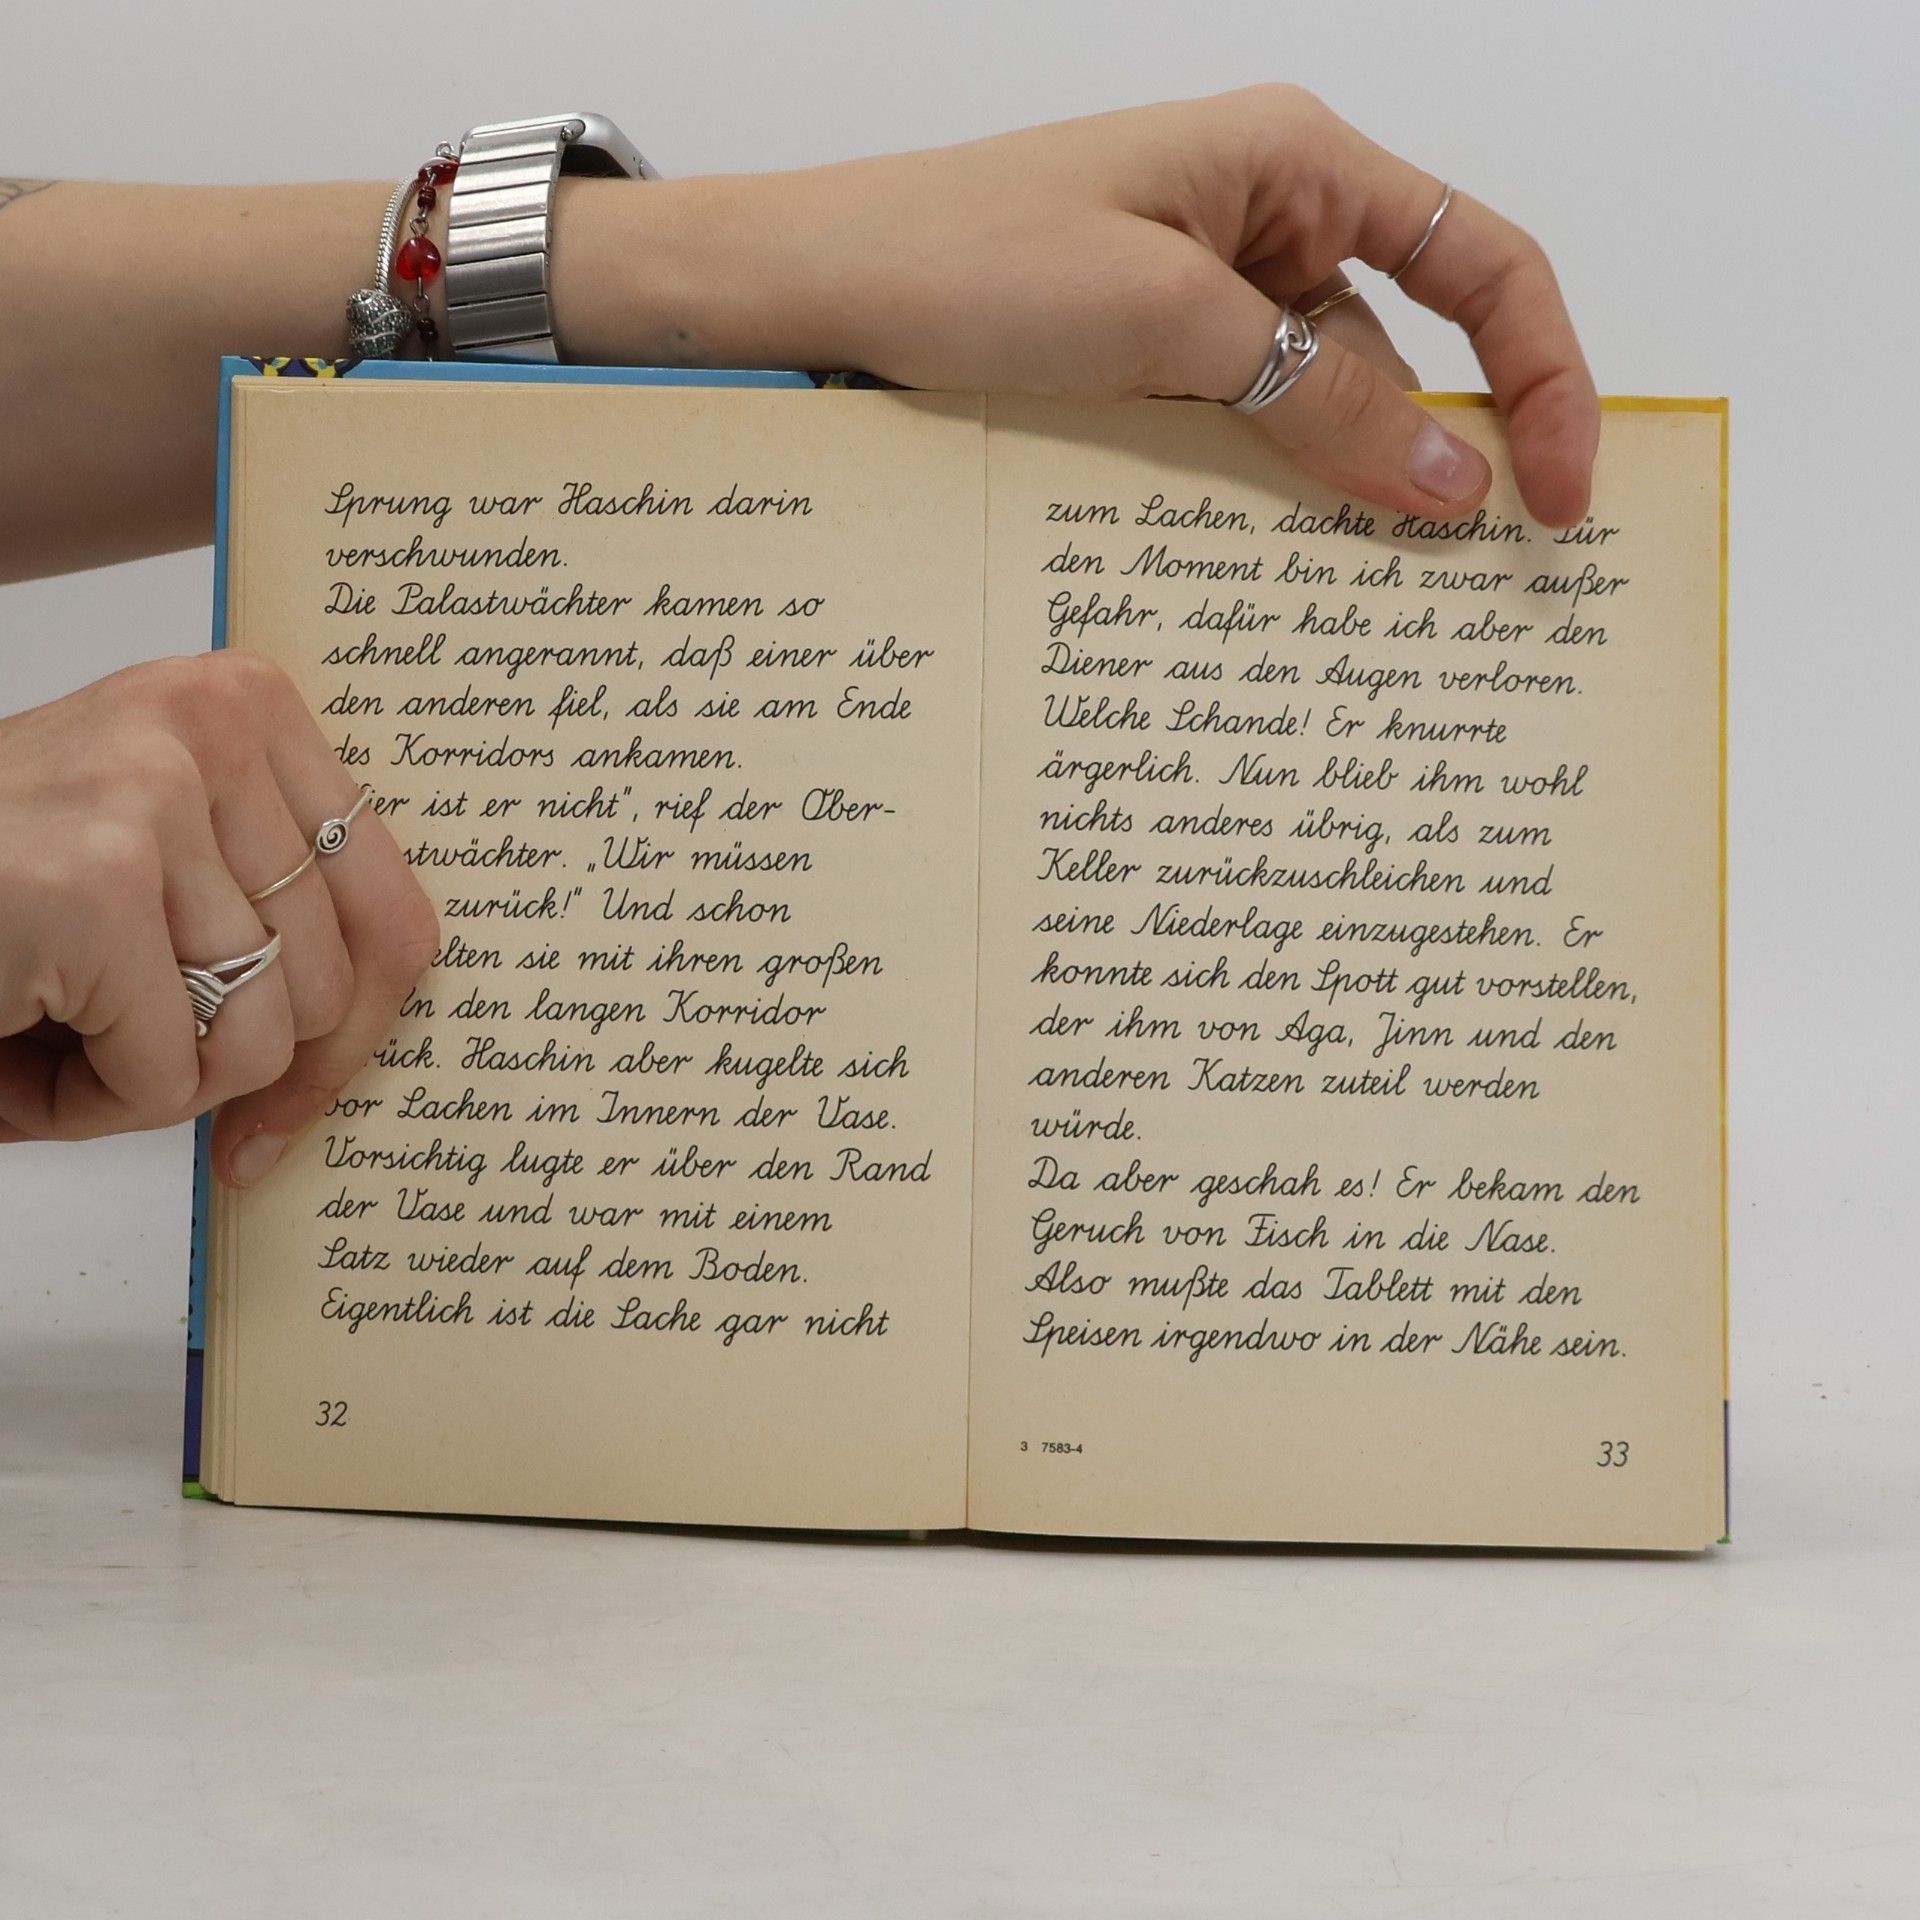 Sprung war Haschin darin
verschwunden.
Die Palastwächter kamen so
schnell angerannt, daß einer über
den anderen fiel, als sie am Ende
des Korridors ankamen.
ist er nicht", rief der Ober-
„Wir müssen
zurück!" Und schon
sie mit ihren großen
den langen Korridor
Haschin aber kugelte sich
vor Lachen im Innern der Vase.
Vorsichtig lugte er über den Rand
der Vase und war mit einem
Satz wieder auf dem Boden.
Eigentlich ist die Sache gar nicht
32
zum Lachen, dachte Haschin. Für
den Moment bin ich zwar außer
Gefahr, dafür habe ich aber den
Diener aus den Augen verloren.
Welche Schande! Er knurrte
ärgerlich. Nun blieb ihm wohl
nichts anderes übrig, als zum
Keller zurückzuschleichen und
seine Niederlage einzugestehen. Er
konnte sich den Spott gut vorstellen,
der ihm von Aga, Jinn und den
anderen Katzen zuteil werden
würde.
Da aber geschah es! Er bekam den
Geruch von Fisch in die Nase.
Also mußte das Tablett mit den
Speisen irgendwo in der Nähe sein.
3 7583-4
33